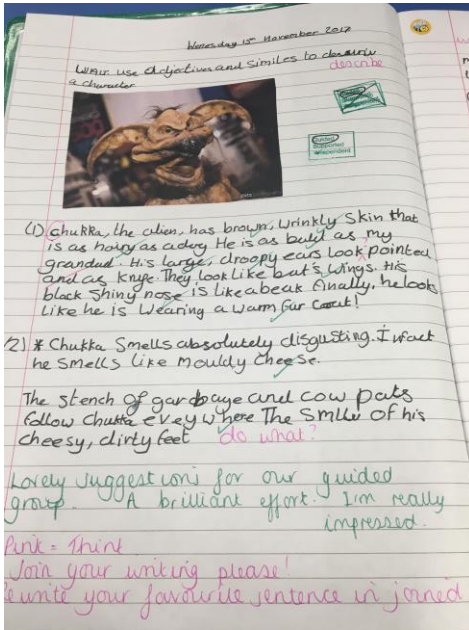 Wenesday 15th November 2017
WALT: use adjectives and similes to
describe
a character
guided
supported
independent
(1) Chukka, the alien, has brown, wrinkly skin that
is as hairy as a dog He is as bald as my
grandad. His large, droopy ears look pointed
and as knife They look like bat's wings. His
black shiny nose is like a beak finally, he looks
like he is wearing a warm fur coat!
(2) * Chukka smells absolutely disgusting. Infact
he smells like mouldy cheese.
The stench of garbage and cow pats
follow Chukka evey where The smlle of his
cheesy, dirty feet do what?
Lovely suggestions for our guided
group. A brilliant effort. I'm really
impressed.
Pink = Think
Join your writing please!
Rewrite your favourite sentence in joined